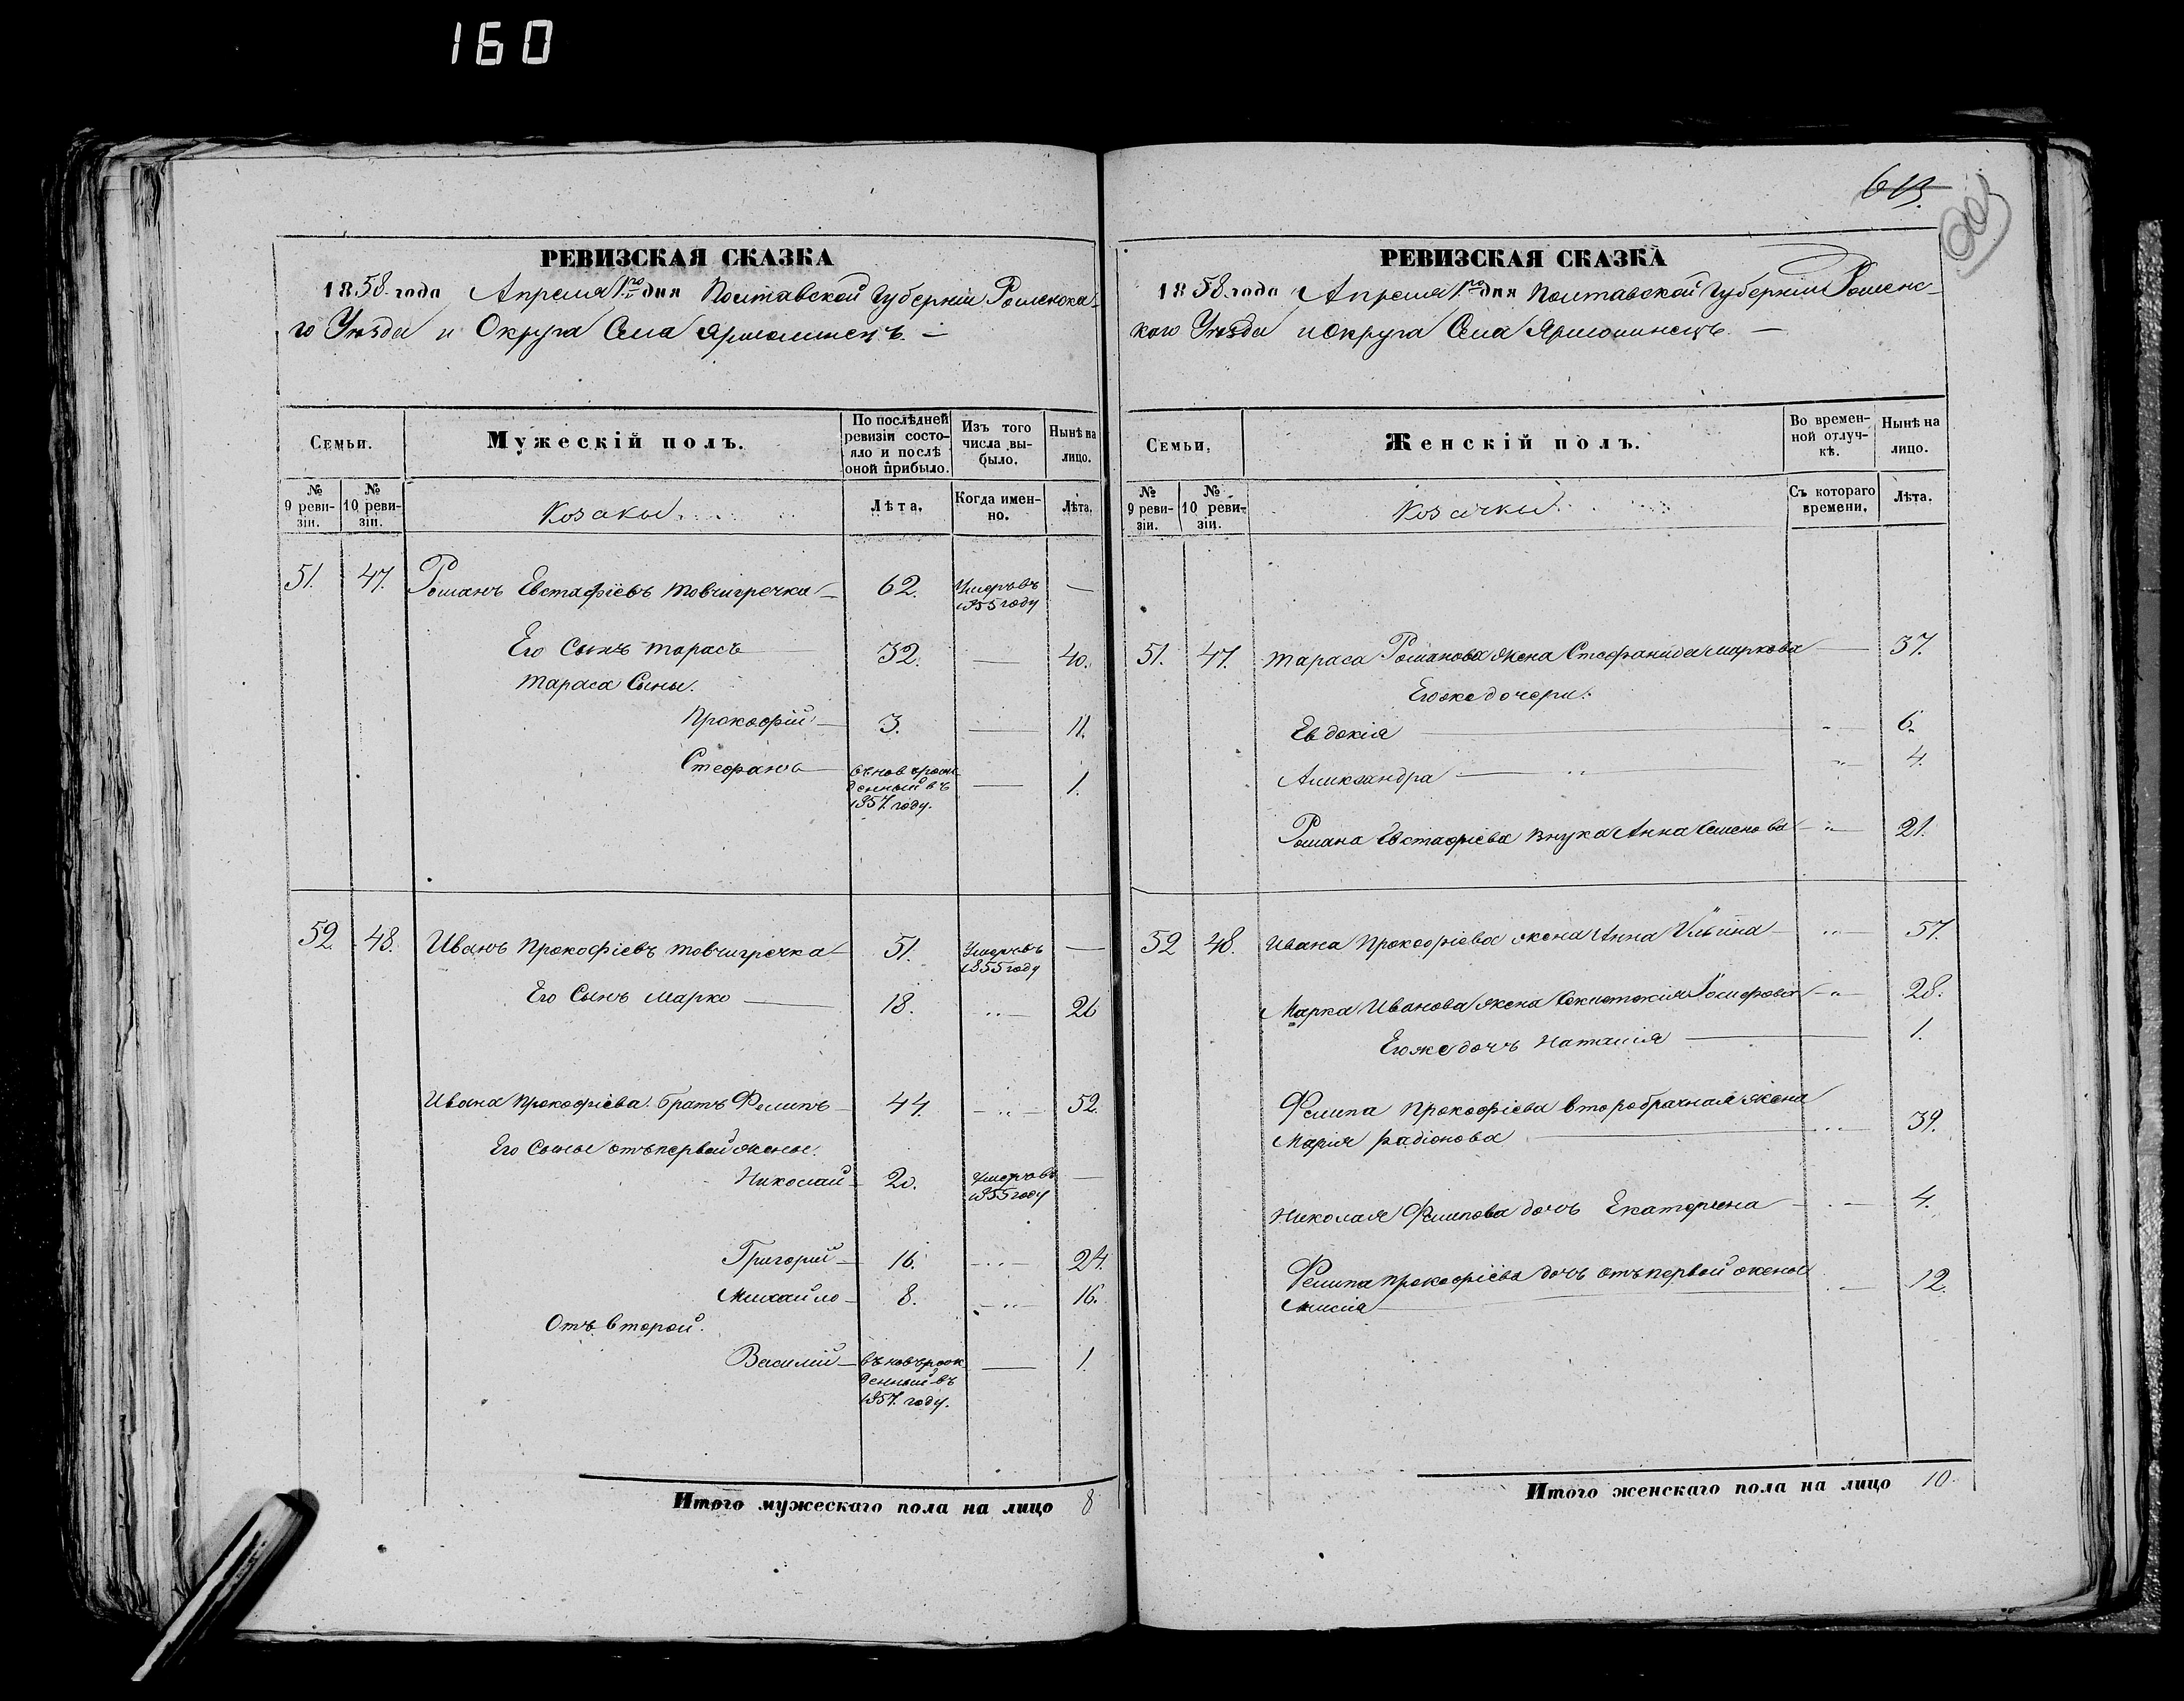 160
613.
РЕВИЗСКАЯ СКАЗКА
1858 года Апреля 1го дня Полтавской Губерніи Роменска-
го Уѣзда и Округа Села Ярмолинецъ. —
Семьи.
Мужескій полъ.
По послѣдней ревизіи состояло и послѣ оной прибыло.
Изъ того числа выбыло.
Нынѣ на лицо.
№ 9 ревизіи.
№ 10 ревизіи.
Козаки.
Лѣта.
Когда именно.
Лѣта.
51. 47. Романъ Евстафіевъ Товчигречка — 62. Умеръ въ 1855 году —
Его Сынъ Тарасъ 32. — 40.
Тараса Сыны.
Прокофій — 3. — 11.
Стефанъ — въновърожденный въ 1857. году. — 1.
52. 48. Иванъ Прокофіевъ Товчигречка — 51. Умеръ въ 1855 году —
Его Сынъ Марко — 18. — 26
Ивана Прокофіева братъ Филипъ — 44. — 52.
Его Сыны отъ первой жены.
Николай — 20. Умеръ въ 1855 году —
Григорій — 16. — 24.
Михайло — 8. — 16.
Отъ второй.
Василій — въновърожденный въ 1857. году. — 1.
Итого мужескаго пола на лицо 8
РЕВИЗСКАЯ СКАЗКА
1858 года Апреля 1го дня Полтавской Губерніи Роменс-
каго Уѣзда и Округа Села Ярмолинецъ. —
Семьи.
Женскій полъ.
Во временной отлучкѣ.
Нынѣ на лицо.
№ 9 ревизіи.
№ 10 ревизіи.
Козачки.
Съ котораго времени.
Лѣта.
51. 47. Тараса Романова жена Стефанида Маркова — 37.
Его же дочери.
Евдокія — 6.
Александра — 4.
Романа Евстафіева внука Анна Семенова — 21.
52 48. Ивана Прокофіева жена Анна Ильина — 57.
Марка Иванова жена Іосифова — 28.
Его же дочь Наталія — 1.
Филипа Прокофіева второбрачная жена
Марія Радіонова — 39.
Николая Филипова дочь Екатерина — 4.
Филипа Прокофіева дочь отъ первой жены
— 12.
Итого женскаго пола на лицо 10